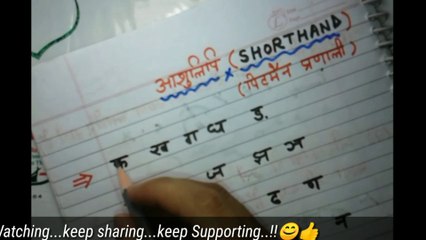 आशुलिपि (SHORTHAND)
(पिटमैन प्रणाली)
⇒ क ख ग घ ड.
ज झ ञ
ढ ण
न
Watching...keep sharing...keep Supporting..!!😊👍